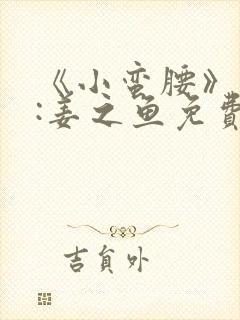 《小蛮腰》
:姜之鱼免費
吉負外